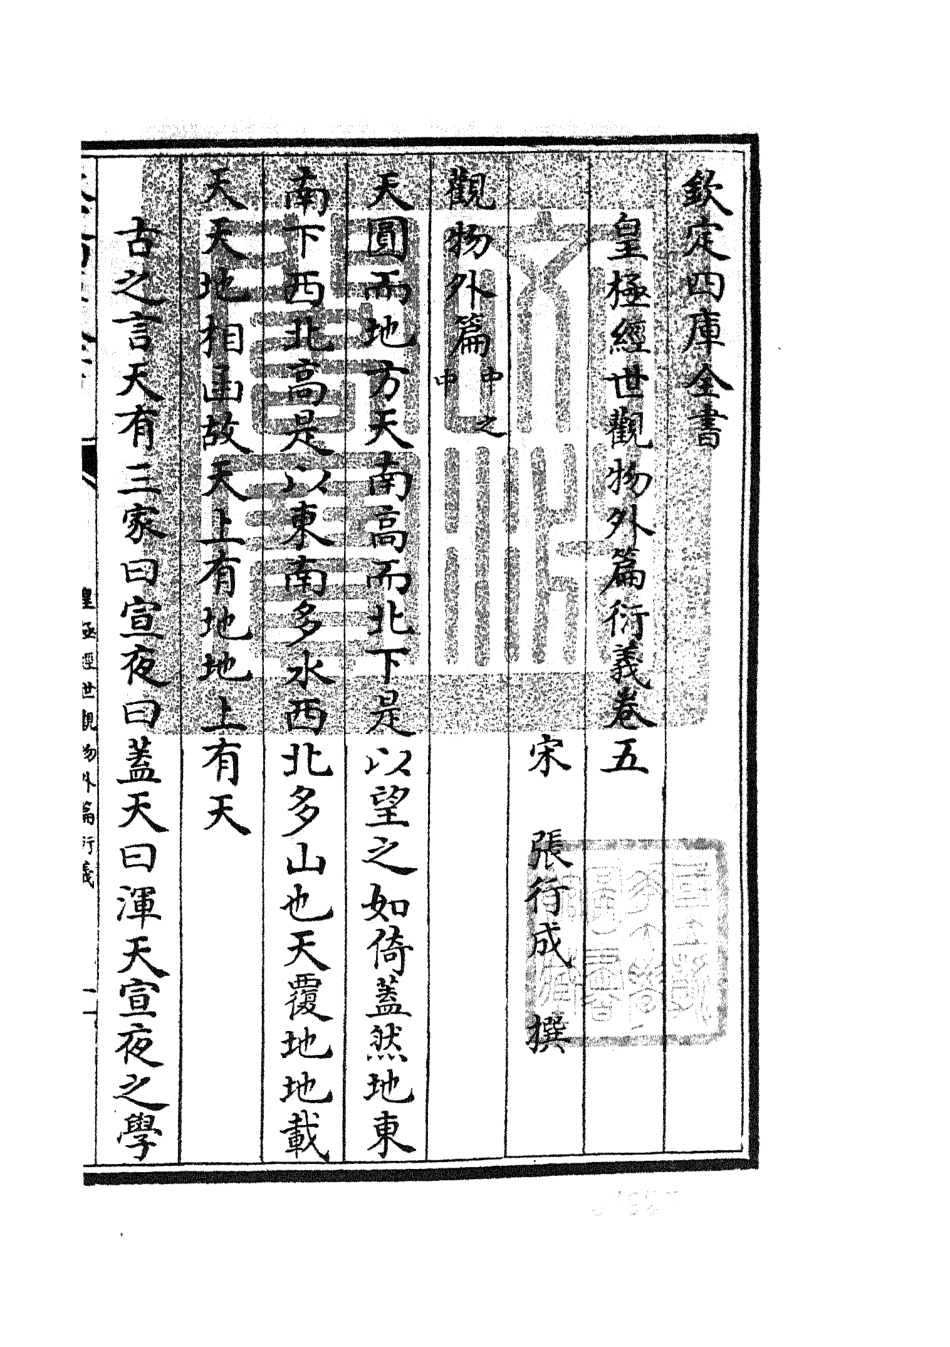 欽定四庫全書
皇極經世觀物外篇衍義卷五
宋　張行成　撰
觀物外篇中之中
天圓而地方天南高而北下是以望之如倚蓋然地東
南下西北高是以東南多水西北多山也天覆地地載
天天地相函故天上有地地上有天
古之言天有三家曰宣夜曰蓋天曰渾天宣夜之學
皇極經世觀物外篇衍義